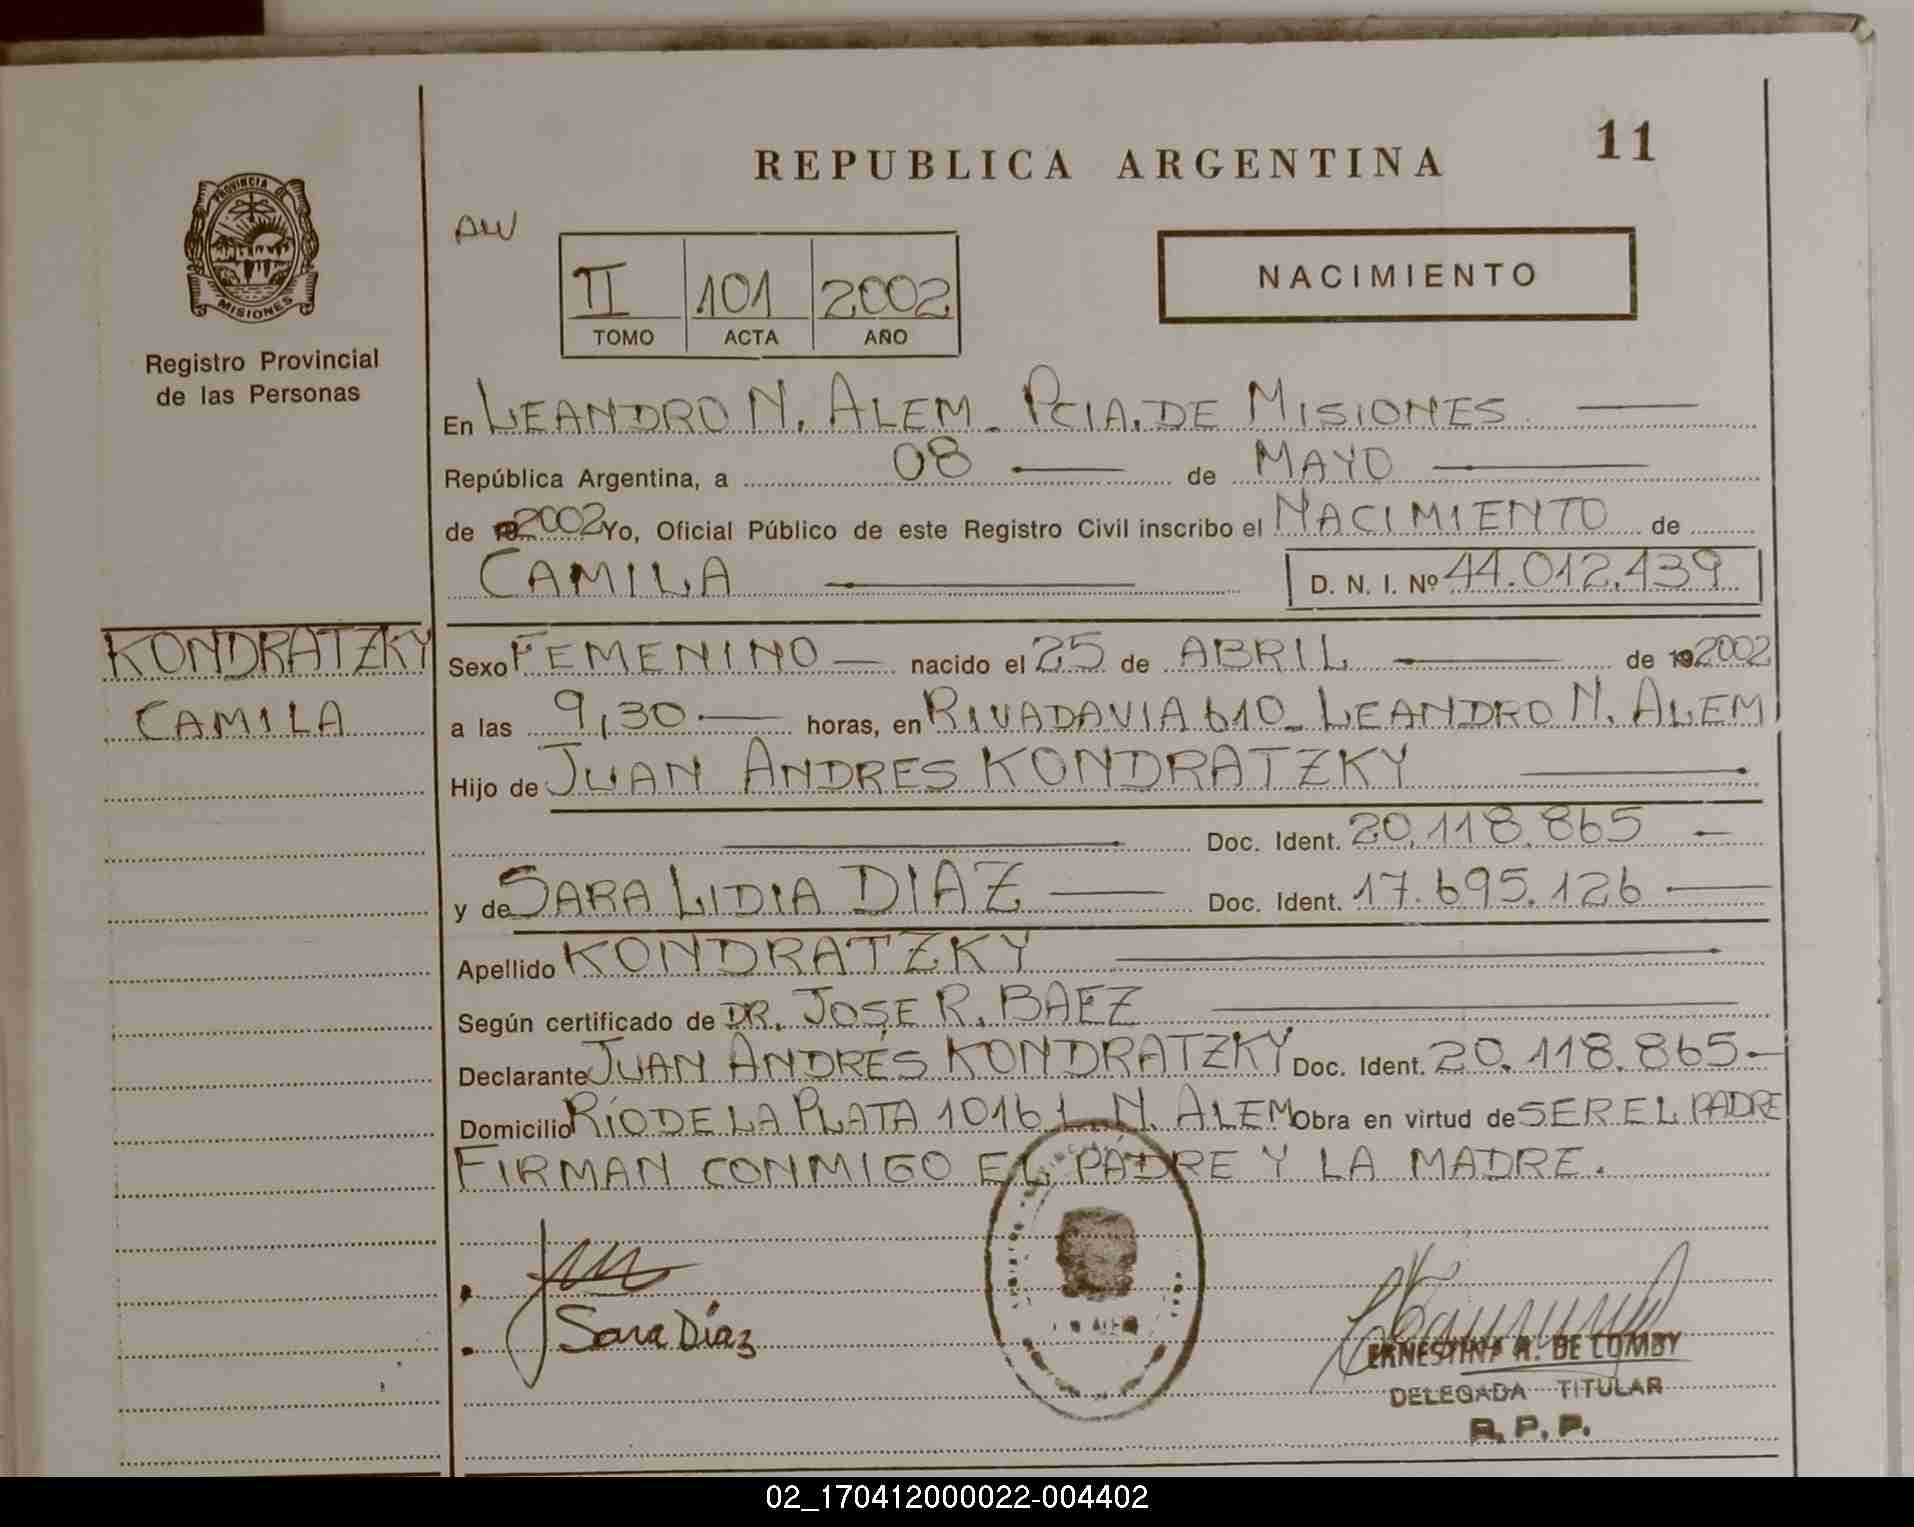 11
REPUBLICA ARGENTINA
PROVINCIA DE
MISIONES
Registro Provincial
de las Personas
AW
II 101 2002
TOMO ACTA AÑO
NACIMIENTO
En LEANDRO N. ALEM. PCIA. DE MISIONES
República Argentina, a 08 de MAYO
de 2002 Yo, Oficial Público de este Registro Civil inscribo el NACIMIENTO de
CAMILA D. N. I. Nº 44.012.439
KONDRATZKY
CAMILA
Sexo FEMENINO nacido el 25 de ABRIL de 2002
a las 9,30 horas, en RIVADAVIA 610_ LEANDRO N. ALEM
Hijo de JUAN ANDRES KONDRATZKY
Doc. Ident. 20.118.865
y de SARA LIDIA DIAZ Doc. Ident. 17.695.126
Apellido KONDRATZKY
Según certificado de DR. JOSE R. BAEZ
Declarante JUAN ANDRÉS KONDRATZKY Doc. Ident. 20.118.865
Domicilio RÍO DE LA PLATA 1016 L. N. ALEM Obra en virtud de SER EL PADRE
FIRMAN CONMIGO EL PADRE Y LA MADRE.
Sara Díaz
ERNESTINA R. DE LOMBY
DELEGADA TITULAR
R. P. P.
02_170412000022-004402